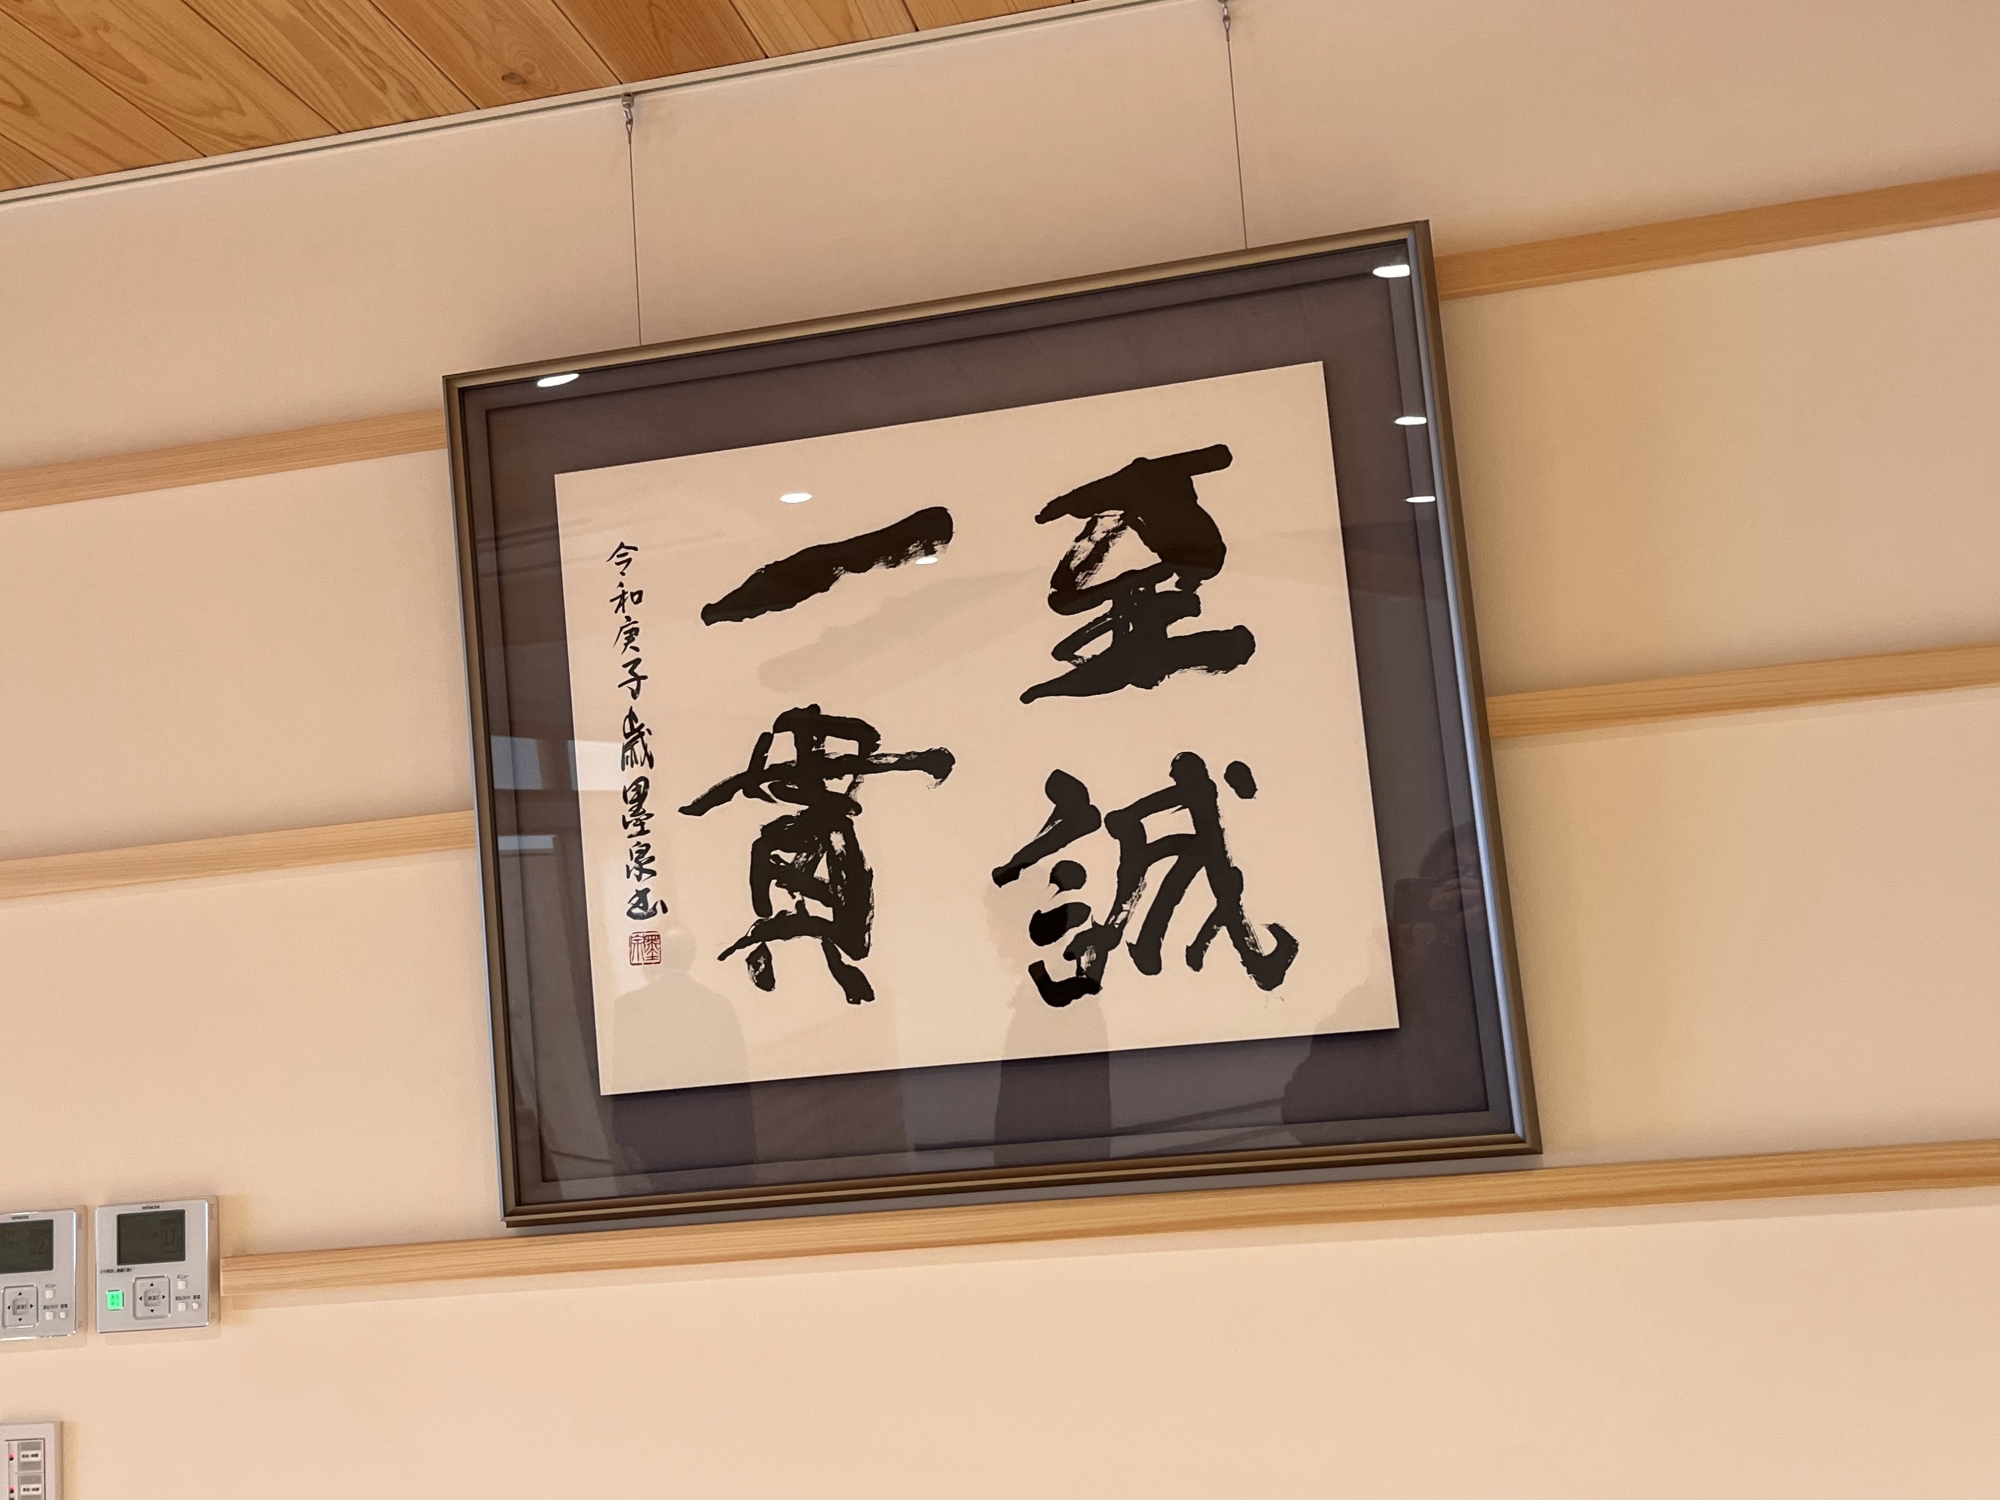 至誠
一貫
令和庚子歳墨泉書
墨泉
HITACHI
HITACHI